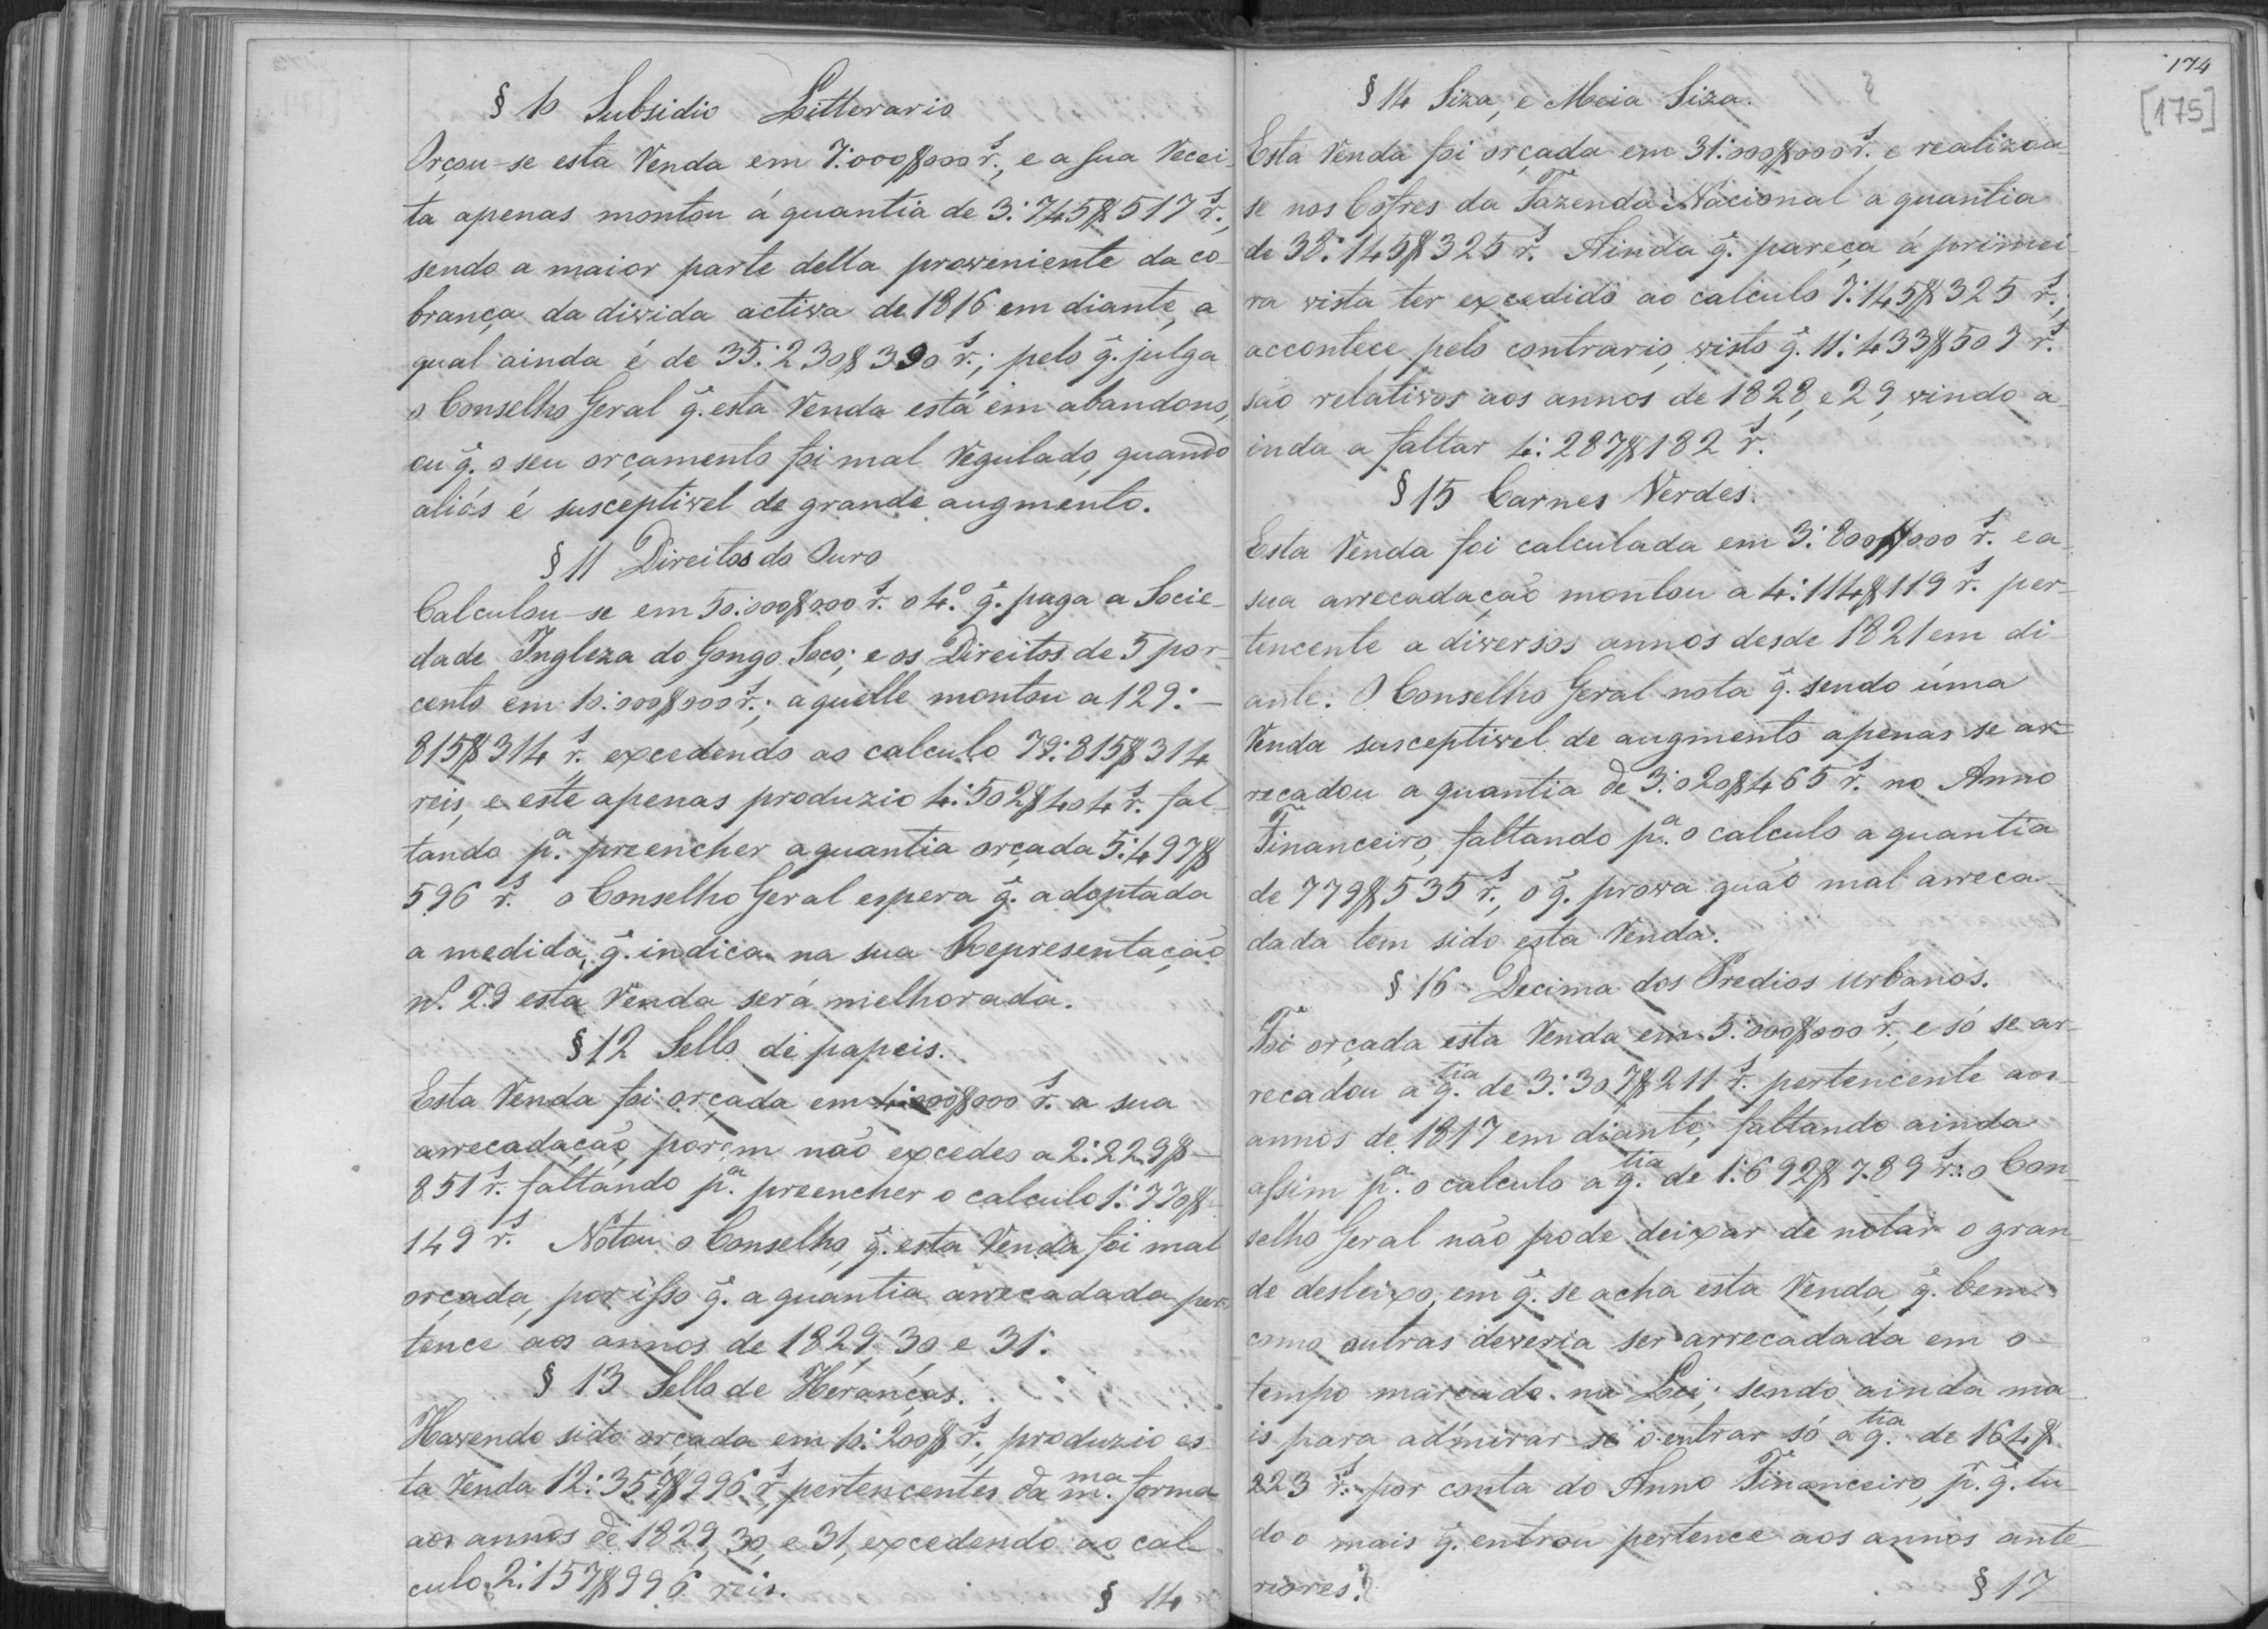 § 10 Subsidio Litterario
Orçou-se esta Renda em 7:000$000 rs., e a sua Recei-
ta apenas montou á quantia de 3:745$517 rs.,
sendo a maior parte della proveniente da co-
brança da divida activa de 1816 em diante, a
qual ainda é de 35:230$390 rs.; pelo q̃. julga
o Conselho Geral q̃. esta Renda está em abandono,
ou q̃. o seu orçamento foi mal Regulado, quando
aliás é susceptivel de grande augmento.
§ 11 Direitos do Ouro
Calculou-se em 50:000$000 rs. o 4.º q̃. paga a Socie-
dade Ingleza do Gongo Soco; e os Direitos de 5 por-
cento em 10:000$000 rs.; aquelle montou a 129:-
815$314 rs. excedendo ao calculo 79:815$314
reis, e este apenas produzio 4:502$404 rs. fal-
tando p.ª preencher a quantia orçada 5:497$
596 rs. o Conselho Geral espera q̃. adoptada
a medida, q̃. indica na sua Representação
n.º 29 esta Renda será melhorada.
§ 12 Sello de papeis.
Esta Renda foi orçada em 4:000$000 rs. a sua
arrecadação, porem não excedeo a 2:229$-
851 rs. faltando p.ª preencher o calculo 1:770$-
149 rs. Notou o Conselho, q̃. esta Renda foi mal
orçada, por isso q̃. a quantia arrecadada per-
tence aos annos de 1829, 30, e 31.
§ 13 Sello de Heranças.
Havendo sido orçada em 10:200$ rs., produzio es-
ta Renda 12:357$996 rs. pertencentes da m.ma forma
aos annos de 1829, 30, e 31, excedendo ao cal-
culo 2:157$996 reis.
§ 14
174
[175]
§ 14 Siza, e Meia Siza.
Esta Renda foi orçada em 31:000$000 rs. e realizou-
se nos Cofres da Fazenda Nacional a quantia
de 38:145$325 rs. Ainda q̃. pareça á primei-
ra vista ter excedido ao calculo 7:145$325 rs.,
accontece pelo contrario, visto q̃. 11:433$507 rs.
são relativos aos annos de 1828, e 29, vindo a-
inda a faltar 4:287$182 rs.
§ 15 Carnes Verdes.
Esta Renda foi calculada em 3:800$000 rs. e a
sua arrecadação montou a 4:114$119 rs. per-
tencente a diversos annos desde 1821 em di-
ante. O Conselho Geral nota q̃. sendo uma
Renda susceptivel de augmento apenas se ar-
recadou a quantia de 3:020$465 rs. no Anno
Financeiro, faltando p.ª o calculo a quantia
de 779$535 rs., o q̃. prova quão mal arreca-
dada tem sido esta Renda.
§ 16 Decima dos Predios urbanos.
Foi orçada esta Renda em 5:000$000 rs., e só se ar-
recadou a q.tia de 3:307$211 rs. pertencente aos
annos de 1817 em diante, faltando ainda
assim p.ª o calculo a q.tia de 1:692$789 rs.: o Con-
selho Geral não pode deixar de notar o gran-
de desleixo, em q̃. se acha esta Renda, q̃. bem
como outras deveria ser arrecadada em o
tempo marcado na Lei; sendo ainda ma-
is para admirar-se o entrar só a q.tia de 164$
223 rs. por conta do Anno Financeiro, p.r q̃. tu-
do o mais q̃. entrou pertence aos annos ante-
riores.
§ 17